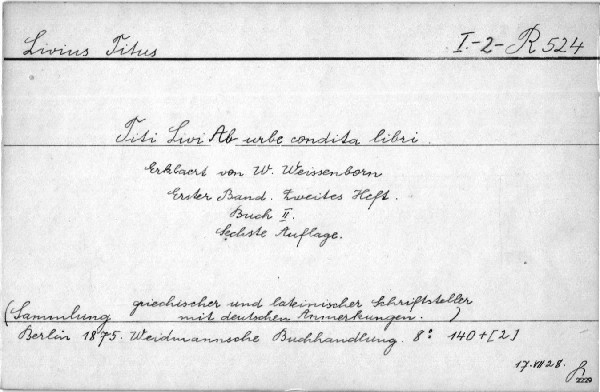 Livius Titus I.-2-R 524
Titi Livi Ab urbe condita libri.
Erklaert von W. Weissenborn
Erster Band. Zweites Heft.
Buch II.
Sechste Auflage.
(Sammlung griechischer und lateinischer Schriftsteller
mit deutschen Anmerkungen.)
Berlin 1875. Weidmannsche Buchhandlung. 8° 140+[2]
17.VII 28.
2229